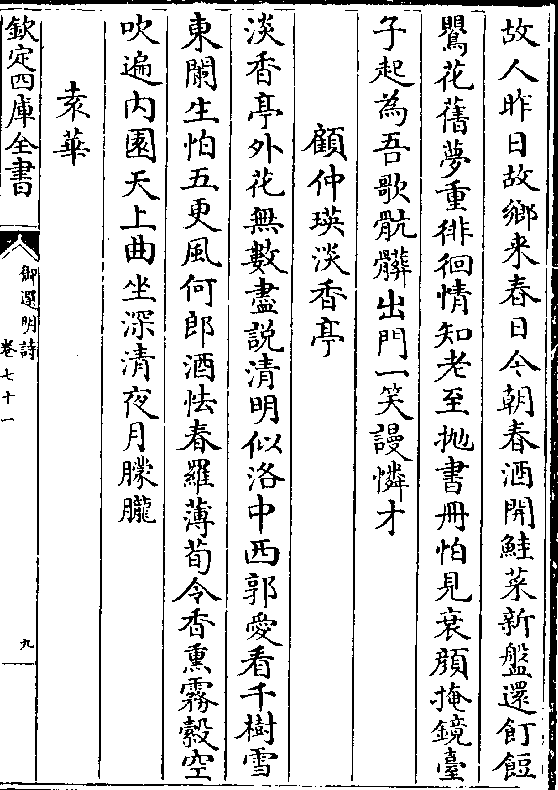 故人昨日故鄉来春日今朝春酒開鮭菜新盤還飣餖
鸎花舊夢重徘徊情知老至抛書冊怕見衰顔掩鏡臺
子起為吾歌骯髒出門一笑謾憐才
顧仲瑛淡香亭
淡香亭外花無數盡說清明似洛中西郭愛看千樹雪
東闌生怕五更風何郎酒怯春羅薄荀令香熏霧縠空
吹遍内園天上曲坐深清夜月朦朧
袁華
欽定四庫全書
御選明詩
卷七十一
九